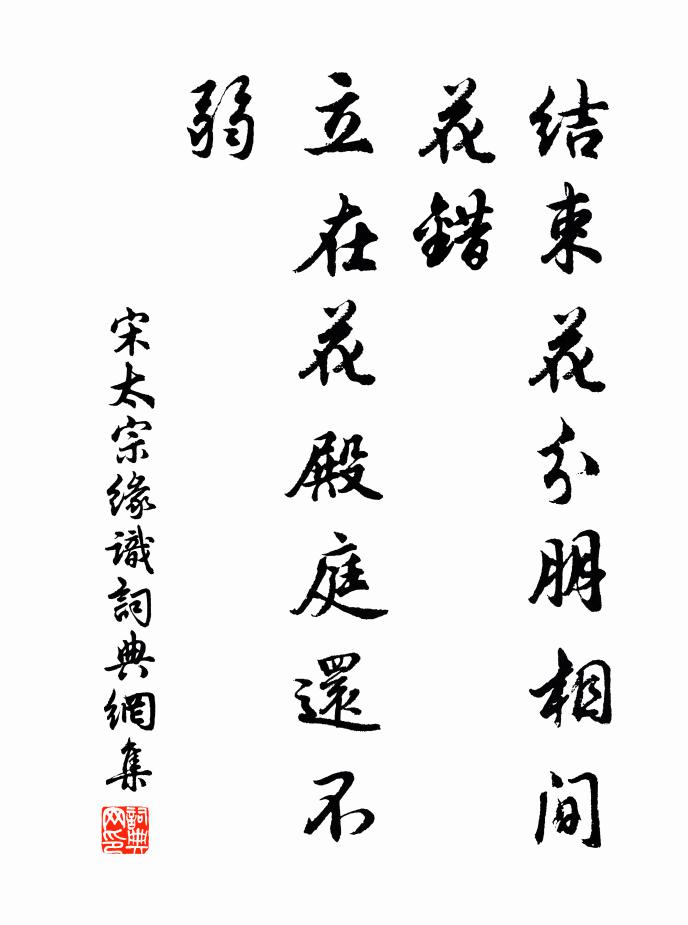 结束花分朋相间
花錯
立在花殿庭還不
弱
宋太宗緣識詞典網集
詞典
网印